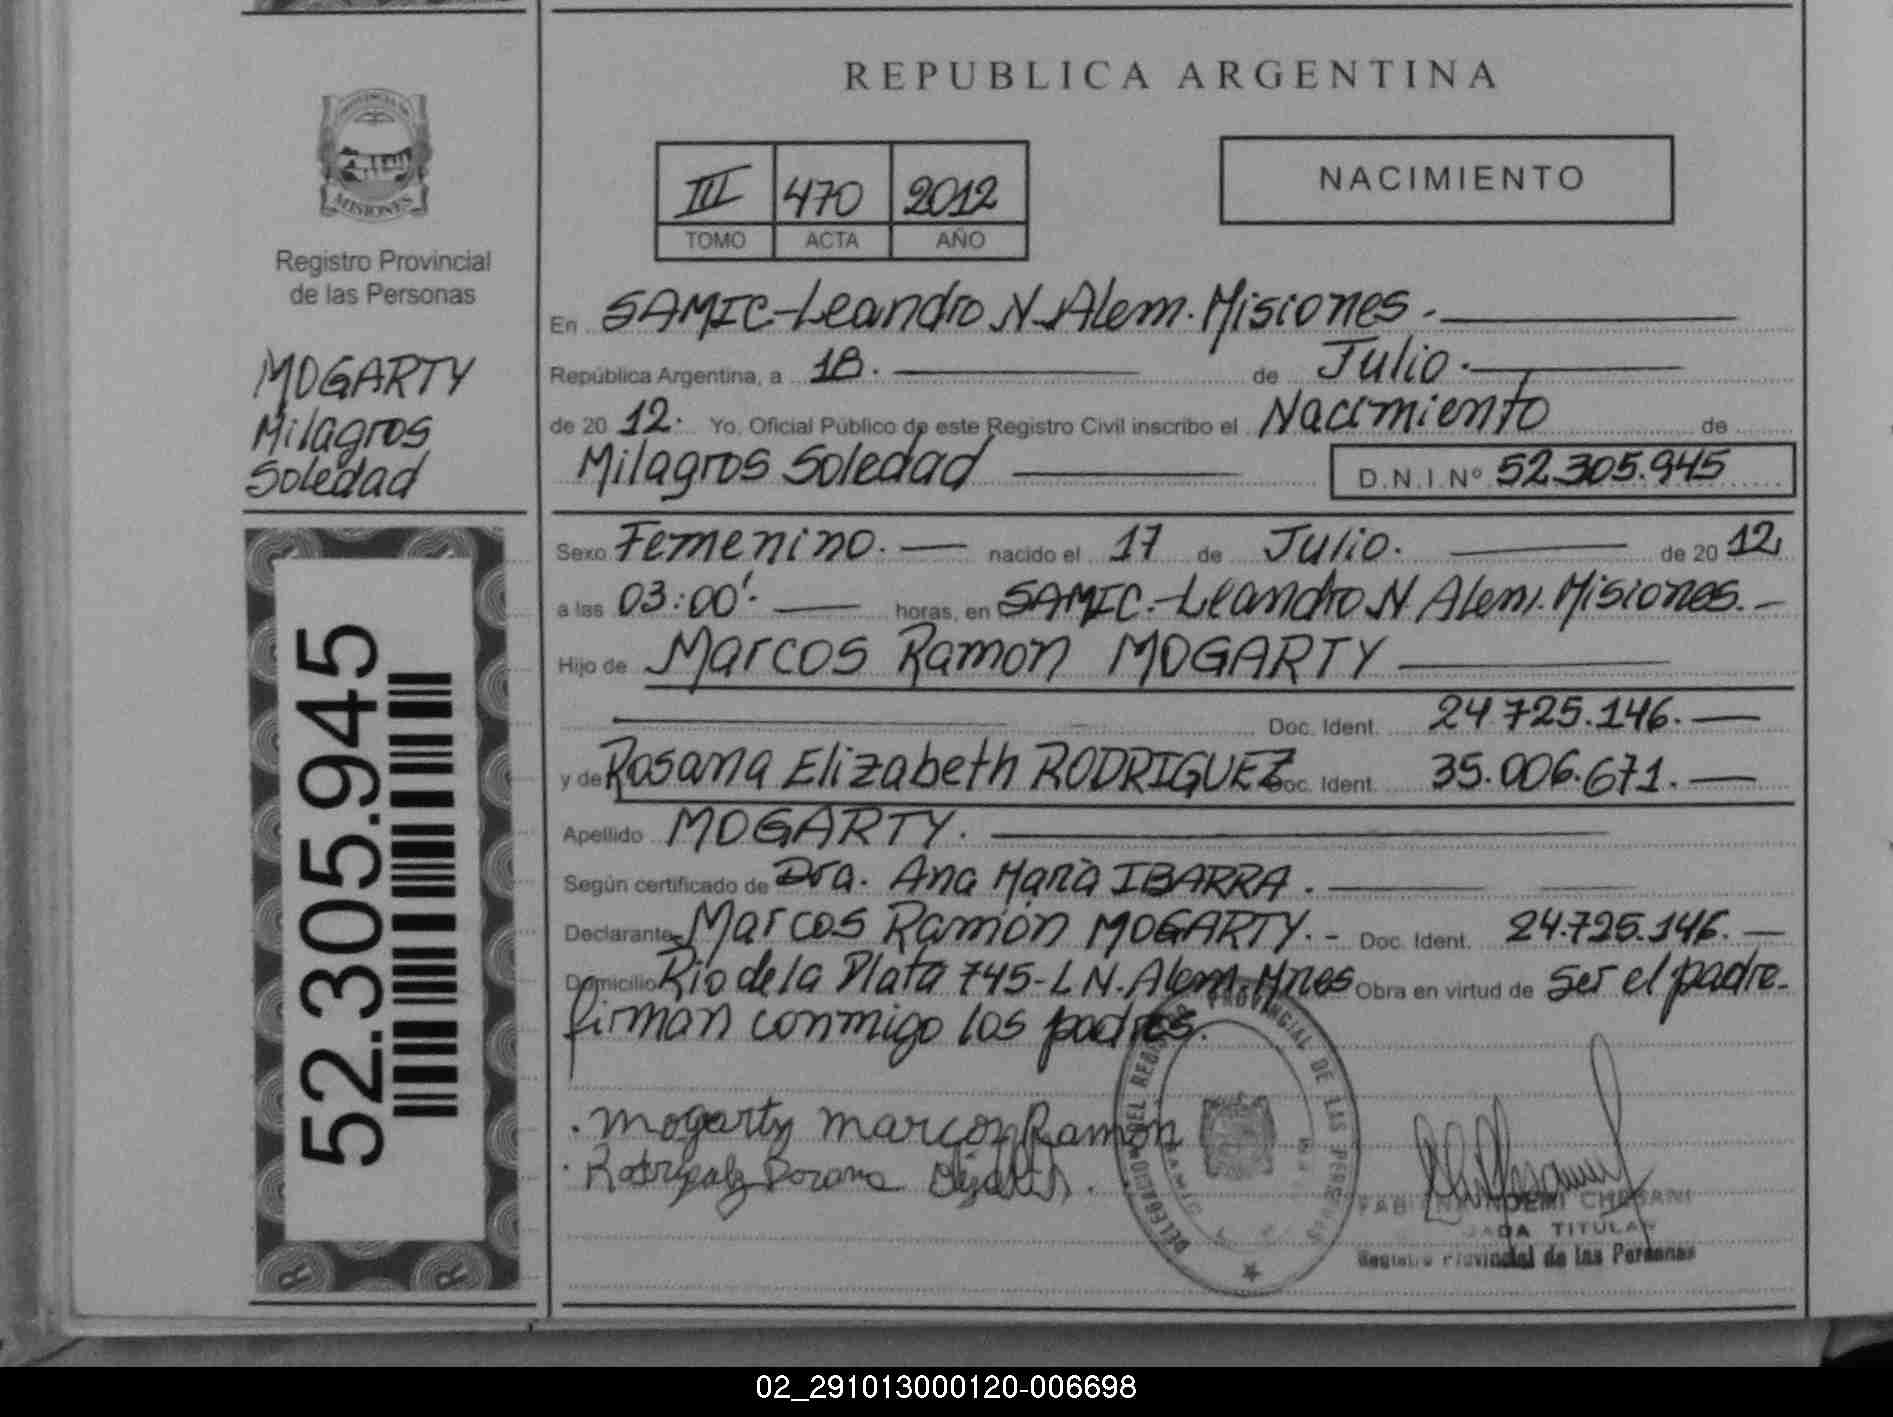 REPUBLICA ARGENTINA
PROVINCIA DE
MISIONES
Registro Provincial
de las Personas
MOGARTY
Milagros
Soledad
52.305.945
III 470 2012
TOMO ACTA AÑO
NACIMIENTO
En SAMIC-Leandro N. Alem. Misiones.
República Argentina, a 18. de Julio.
de 20 12. Yo, Oficial Público de este Registro Civil inscribo el Nacimiento de
Milagros Soledad D.N.I.Nº 52.305.945
Sexo Femenino. nacido el 17 de Julio. de 20 12,
a las 03:00'. horas, en SAMIC.-Leandro N. Alem. Misiones.-
Hijo de Marcos Ramon MOGARTY
Doc. Ident. 24.725.146.
y de Rosana Elizabeth RODRIGUEZ Doc. Ident. 35.006.671.
Apellido MOGARTY.
Según certificado de Dra. Ana Maria IBARRA.
Declarante Marcos Ramón MOGARTY.- Doc. Ident. 24.725.146.
Domicilio Rio de la Plata 745-L N. Alem. Mnes Obra en virtud de ser el padre.
firman conmigo los padres.
DELEGACION DEL REGISTRO PROVINCIAL DE LAS PERSONAS
Mogarty Marcos Ramon
TITULAR
Registro Provincial de las Personas
R R
02_291013000120-006698